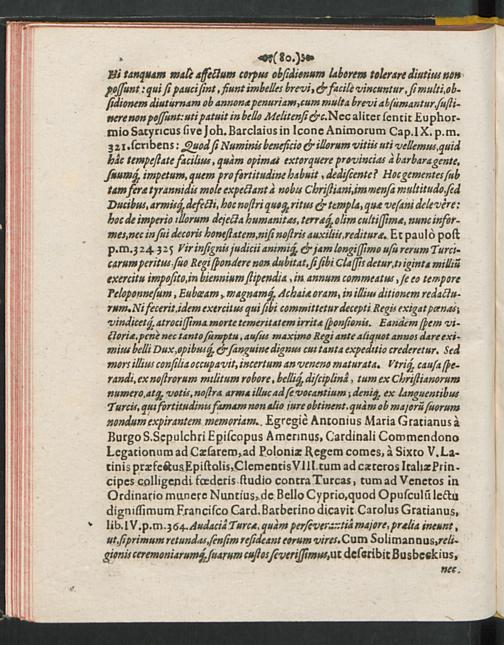 (80.)
Hi tanquam malè affectum corpus obsidionum laborem tolerare diutius non
possunt: qui si pauci sint, fiunt imbelles brevi, & facilè vincuntur, si multi, ob-
sidionem diuturnam ob annonæ penuriam, cum multa brevi absumantur, susti-
nere non possunt: uti patuit in bello Melitensi &c. Nec aliter sentit Euphor-
mio Satyricus sive Joh. Barclaius in Icone Animorum Cap. IX. p. m.
321. scribens: Quod si Numinis beneficio & illorum vitiis uti vellemus, quid
hâc tempestate facilius, quàm opimas extorquere provincias à barbara gente,
suumq; impetum, quem pro fortitudine habuit, dediscente? Hoc gementes sub
tam fera tyrannidis mole expectant à nobis Christiani, immensa multitudo, sed
Ducibus, armisq; defecti, hoc nostri quoq; ritus & templa, quæ vesani delevêre:
hoc de imperio illorum dejecta humanitas, terraq; olim cultissima, nunc infor-
mes, nec in sui decoris honestatem, nisi nostris auxiliis redituræ. Et paulò pòst
p. m. 324. 325 Vir insignis judicii animiq; & jam longissimo usu rerum Turci-
carum peritus suo Regi spondere non dubitat, si sibi Classis detur, triginta milliũ
exercitu imposito, in biennium stipendia, in annum commeatus, se eo tempore
Peloponnesum, Eubœam, magnamq; Achaiæ oram, in illius ditionem redactu-
rum. Ni fecerit, idem exercitus qui sibi committetur decepti Regis exigat pœnas;
vindicetq; atrocissima morte temeritatem irritæ sponsionis. Eandem spem vi-
ctoriæ, penè nec tanto sumptu, ausus maximo Regi ante aliquot annos dare exi-
mius belli Dux, opibusq; & sanguine dignus cui tanta expeditio crederetur. Sed
mors illius consilia occupavit, incertum an veneno maturata. Utriq; causa spe-
randi, ex nostrorum militum robore, belliq; disciplinâ, tum ex Christianorum
numero, atq; votis, nostra arma illuc ad se vocantium; deniq; ex languentibus
Turcis, qui fortitudinis famam non alio jure obtinent, quàm ob majorũ suorum
nondum expirantem memoriam. Egregiè Antonius Maria Gratianus à
Burgo S. Sepulchri Episcopus Amerinus, Cardinali Commendono
Legationum ad Cæsarem, ad Poloniæ Regem comes, à Sixto V. La-
tinis præfectus Epistolis, Clementis VIII. tum ad cæteros Italiæ Prin-
cipes colligendi fœderis studio contra Turcas, tum ad Venetos in
Ordinario munere Nuntius, de Bello Cyprio, quod Opusculũ lectu
dignissimum Francisco Card. Barberino dicavit Carolus Gratianus,
lib. IV. p. m. 364. Audaciâ Turcæ, quàm perseverantiâ majore, prælia ineunt,
ut, si primum retundas, sensim resideant eorum vires. Cum Solimannus, reli-
gionis ceremoniarumq; suarum custos severissimus, ut describit Busbeckius,
nec